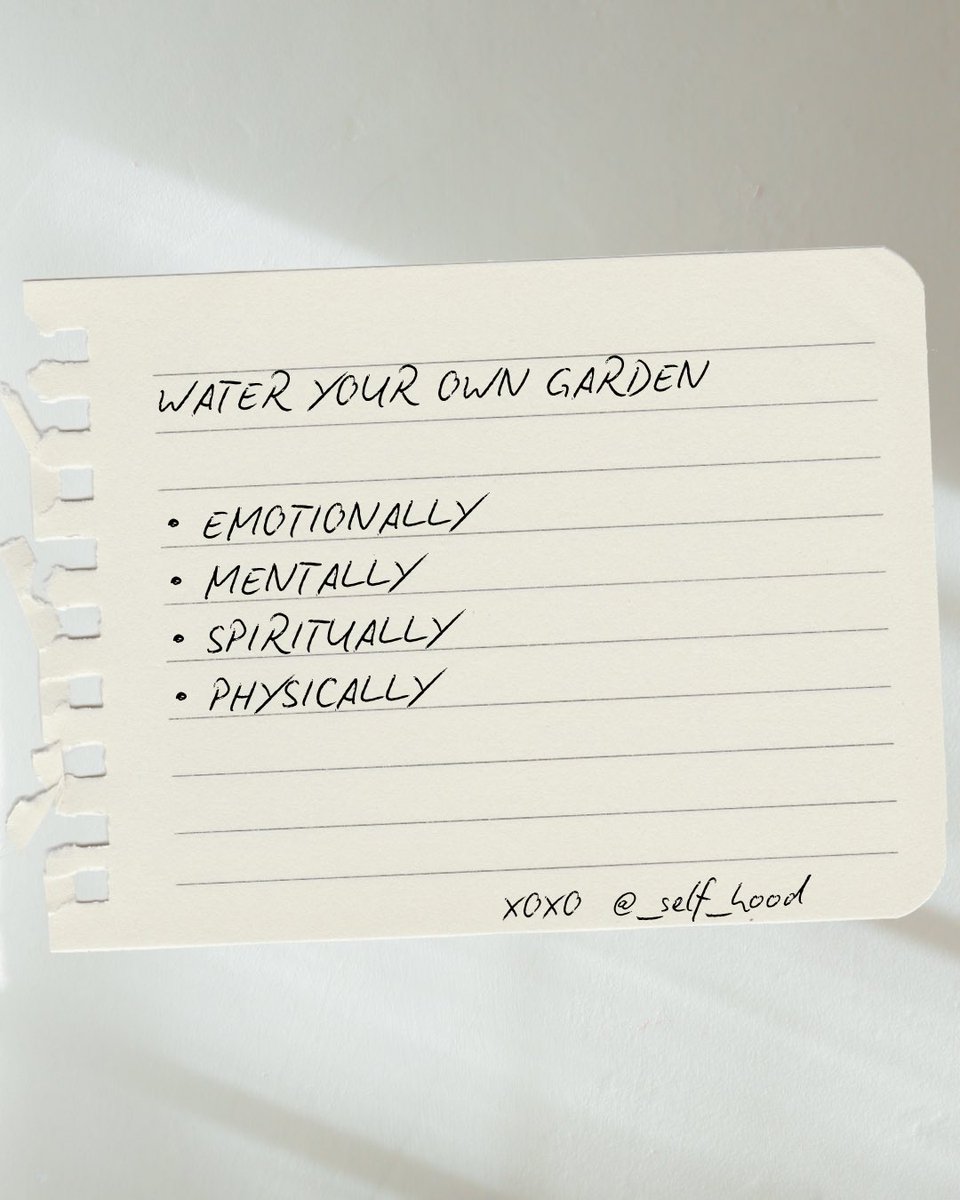 WATER YOUR OWN GARDEN
• EMOTIONALLY
• MENTALLY
• SPIRITUALLY
• PHYSICALLY
XOXO @_self_hood